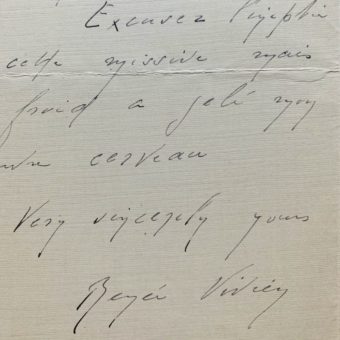 Excusez l'ineptie
cette missive mais
froid a gelé mon
cerveau
Very sincerely yours
Renée Vivien